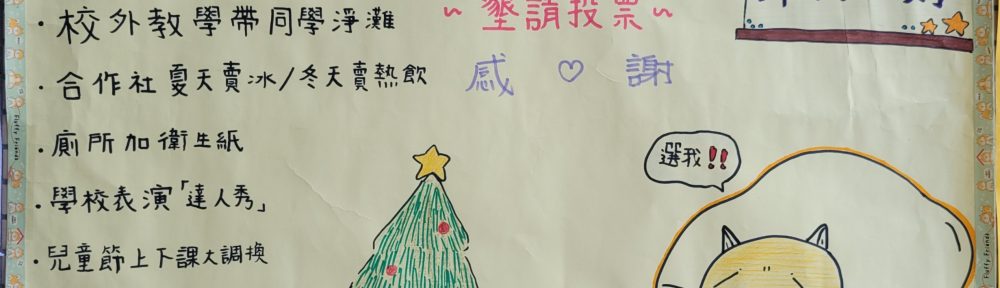 ・校外教學帶同學淨灘
・合作社夏天賣冰/冬天賣熱飲
・廁所加衛生紙
・學校表演「達人秀」
・兒童節上下課大調換
~墾請投票~
感♡謝
選我!!
Fluffy Friends
Fluffy Friends